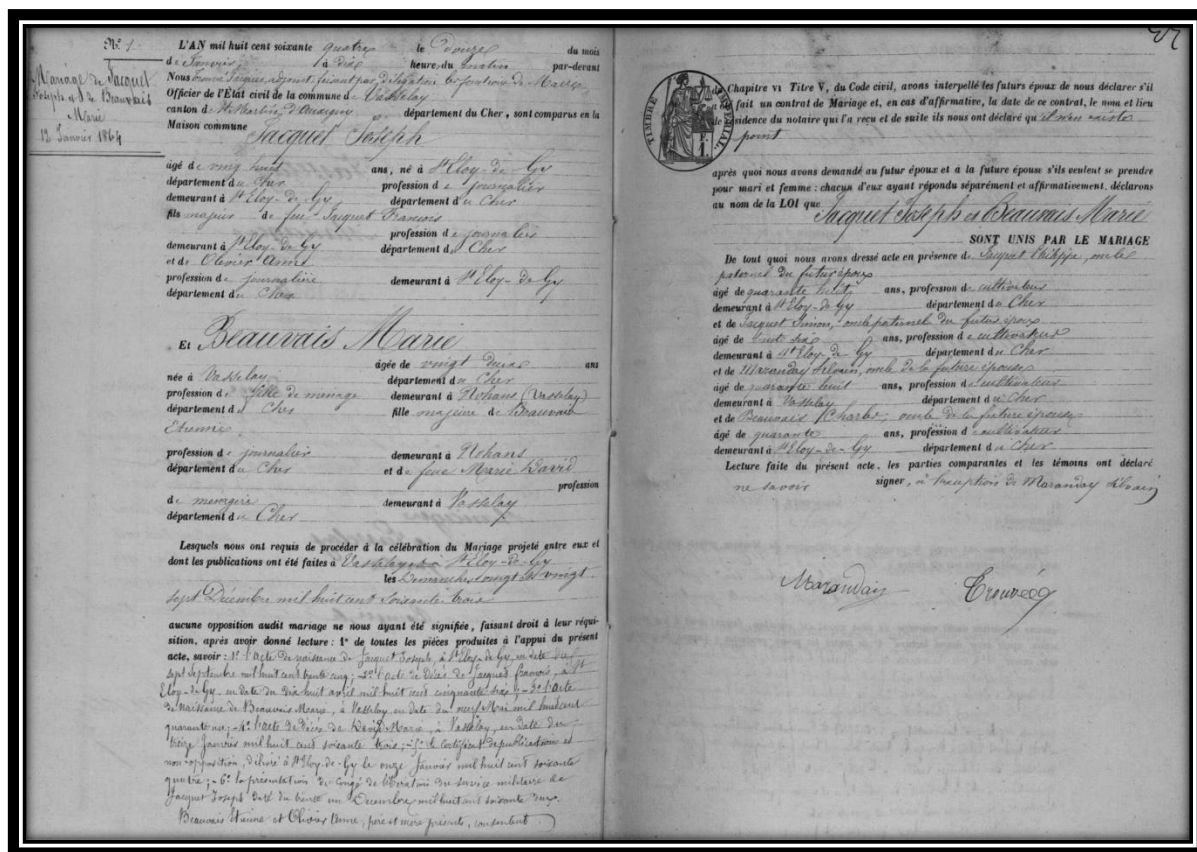 N° 1
Mariage de Jacquet
Joseph et de Beauvais
Marie
12 Janvier 1864
L'AN mil huit cent soixante quatre le Douze du mois
de Janvier à dix heure du matin par-devant
Nous Jacques, adjoint faisant par délégation les fonctions de Maire
Officier de l'État civil de la commune de Vasselay
canton de St Martin d'Auxigny département du Cher, sont comparus en la
Maison commune Jacquet Joseph
âgé de vingt huit ans, né à St Eloy-de-Gy
département du Cher profession de journalier
demeurant à St Eloy-de-Gy département du Cher
fils majeur de feu Jacquet Francois
profession de journalier
demeurant à St Eloy-de-Gy département du Cher
et de Olivier Anne
profession de journalière demeurant à St Eloy-de-Gy
département du Cher
Et Beauvais Marie
âgée de vingt deux ans
née à Vasselay département du Cher
profession de fille de menage demeurant à Nohans (Vasselay)
département du Cher fille majeure de Beauvais
Etienne
profession de journalier demeurant à Nohans
département du Cher et de feue Marie David
profession
de menagère demeurant à Vasselay
département du Cher
Lesquels nous ont requis de procéder à la célébration du Mariage projeté entre eux et
dont les publications ont été faites à Vasselay et à St Eloy-de-Gy
les Dimanches vingt et vingt
sept Décembre mil huit cent soixante trois
aucune opposition audit mariage ne nous ayant été signifiée, faisant droit à leur réqui-
sition, après avoir donné lecture: 1° de toutes les pièces produites à l'appui du présent
acte, savoir: 1° l'acte de naissance de Jacquet Joseph, à St Eloy-de-Gy, en date du
sept Septembre mil huit cent trente cinq; 2° l'acte de décès de Jacquet francois, à St
Eloy-de-Gy, en date du dix huit avril mil huit cent cinquante six; 3° l'acte
de naissance de Beauvais Marie, à Vasselay, en date du neuf Mai mil huit cent
quarante un; 4° l'acte de décès de David Marie, à Vasselay, en date du
treize Janvier mil huit cent soixante trois; 5° le certificat de publications et
non-opposition, délivré à St Eloy-de-Gy le onze Janvier mil huit cent soixante
quatre; 6° la présentation du congé de libération du service militaire de
Jacquet Joseph daté du trente un Decembre mil huit cent soixante deux.
Beauvais Etienne et Olivier Anne, père et mère présents, consentent.
TIMBRE IMPÉRIAL
F.
1
Chapitre VI Titre V, du Code civil, avons interpellé les futurs époux de nous déclarer s'il
a été fait un contrat de Mariage et, en cas d'affirmative, la date de ce contrat, le nom et lieu
de résidence du notaire qui l'a reçu et de suite ils nous ont déclaré qu'il n'en existe
point
après quoi nous avons demandé au futur époux et a la future épouse s'ils veulent se prendre
pour mari et femme: chacun d'eux ayant répondu séparément et affirmativement, déclarons
au nom de la LOI que Jacquet Joseph et Beauvais Marie
SONT UNIS PAR LE MARIAGE
De tout quoi nous avons dressé acte en présence de Jacquet Philippe, oncle
paternel du futur époux
âgé de quarante huit ans, profession de cultivateur
demeurant à St Eloy-de-Gy département du Cher
et de Jacquet Simon, oncle paternel du futur époux
âgé de trente six ans, profession de cultivateur
demeurant à St Eloy-de-Gy département du Cher
et de Maranday Silvain, oncle de la future épouse
âgé de quarante huit ans, profession de cultivateur
demeurant à Vasselay département du Cher
et de Beauvais Charles, oncle de la future épouse
âgé de quarante ans, profession de cultivateur
demeurant à St Eloy-de-Gy département du Cher
Lecture faite du présent acte, les parties comparantes et les témoins ont déclaré
ne savoir signer, à l'exception de Maranday Silvain
Maranday